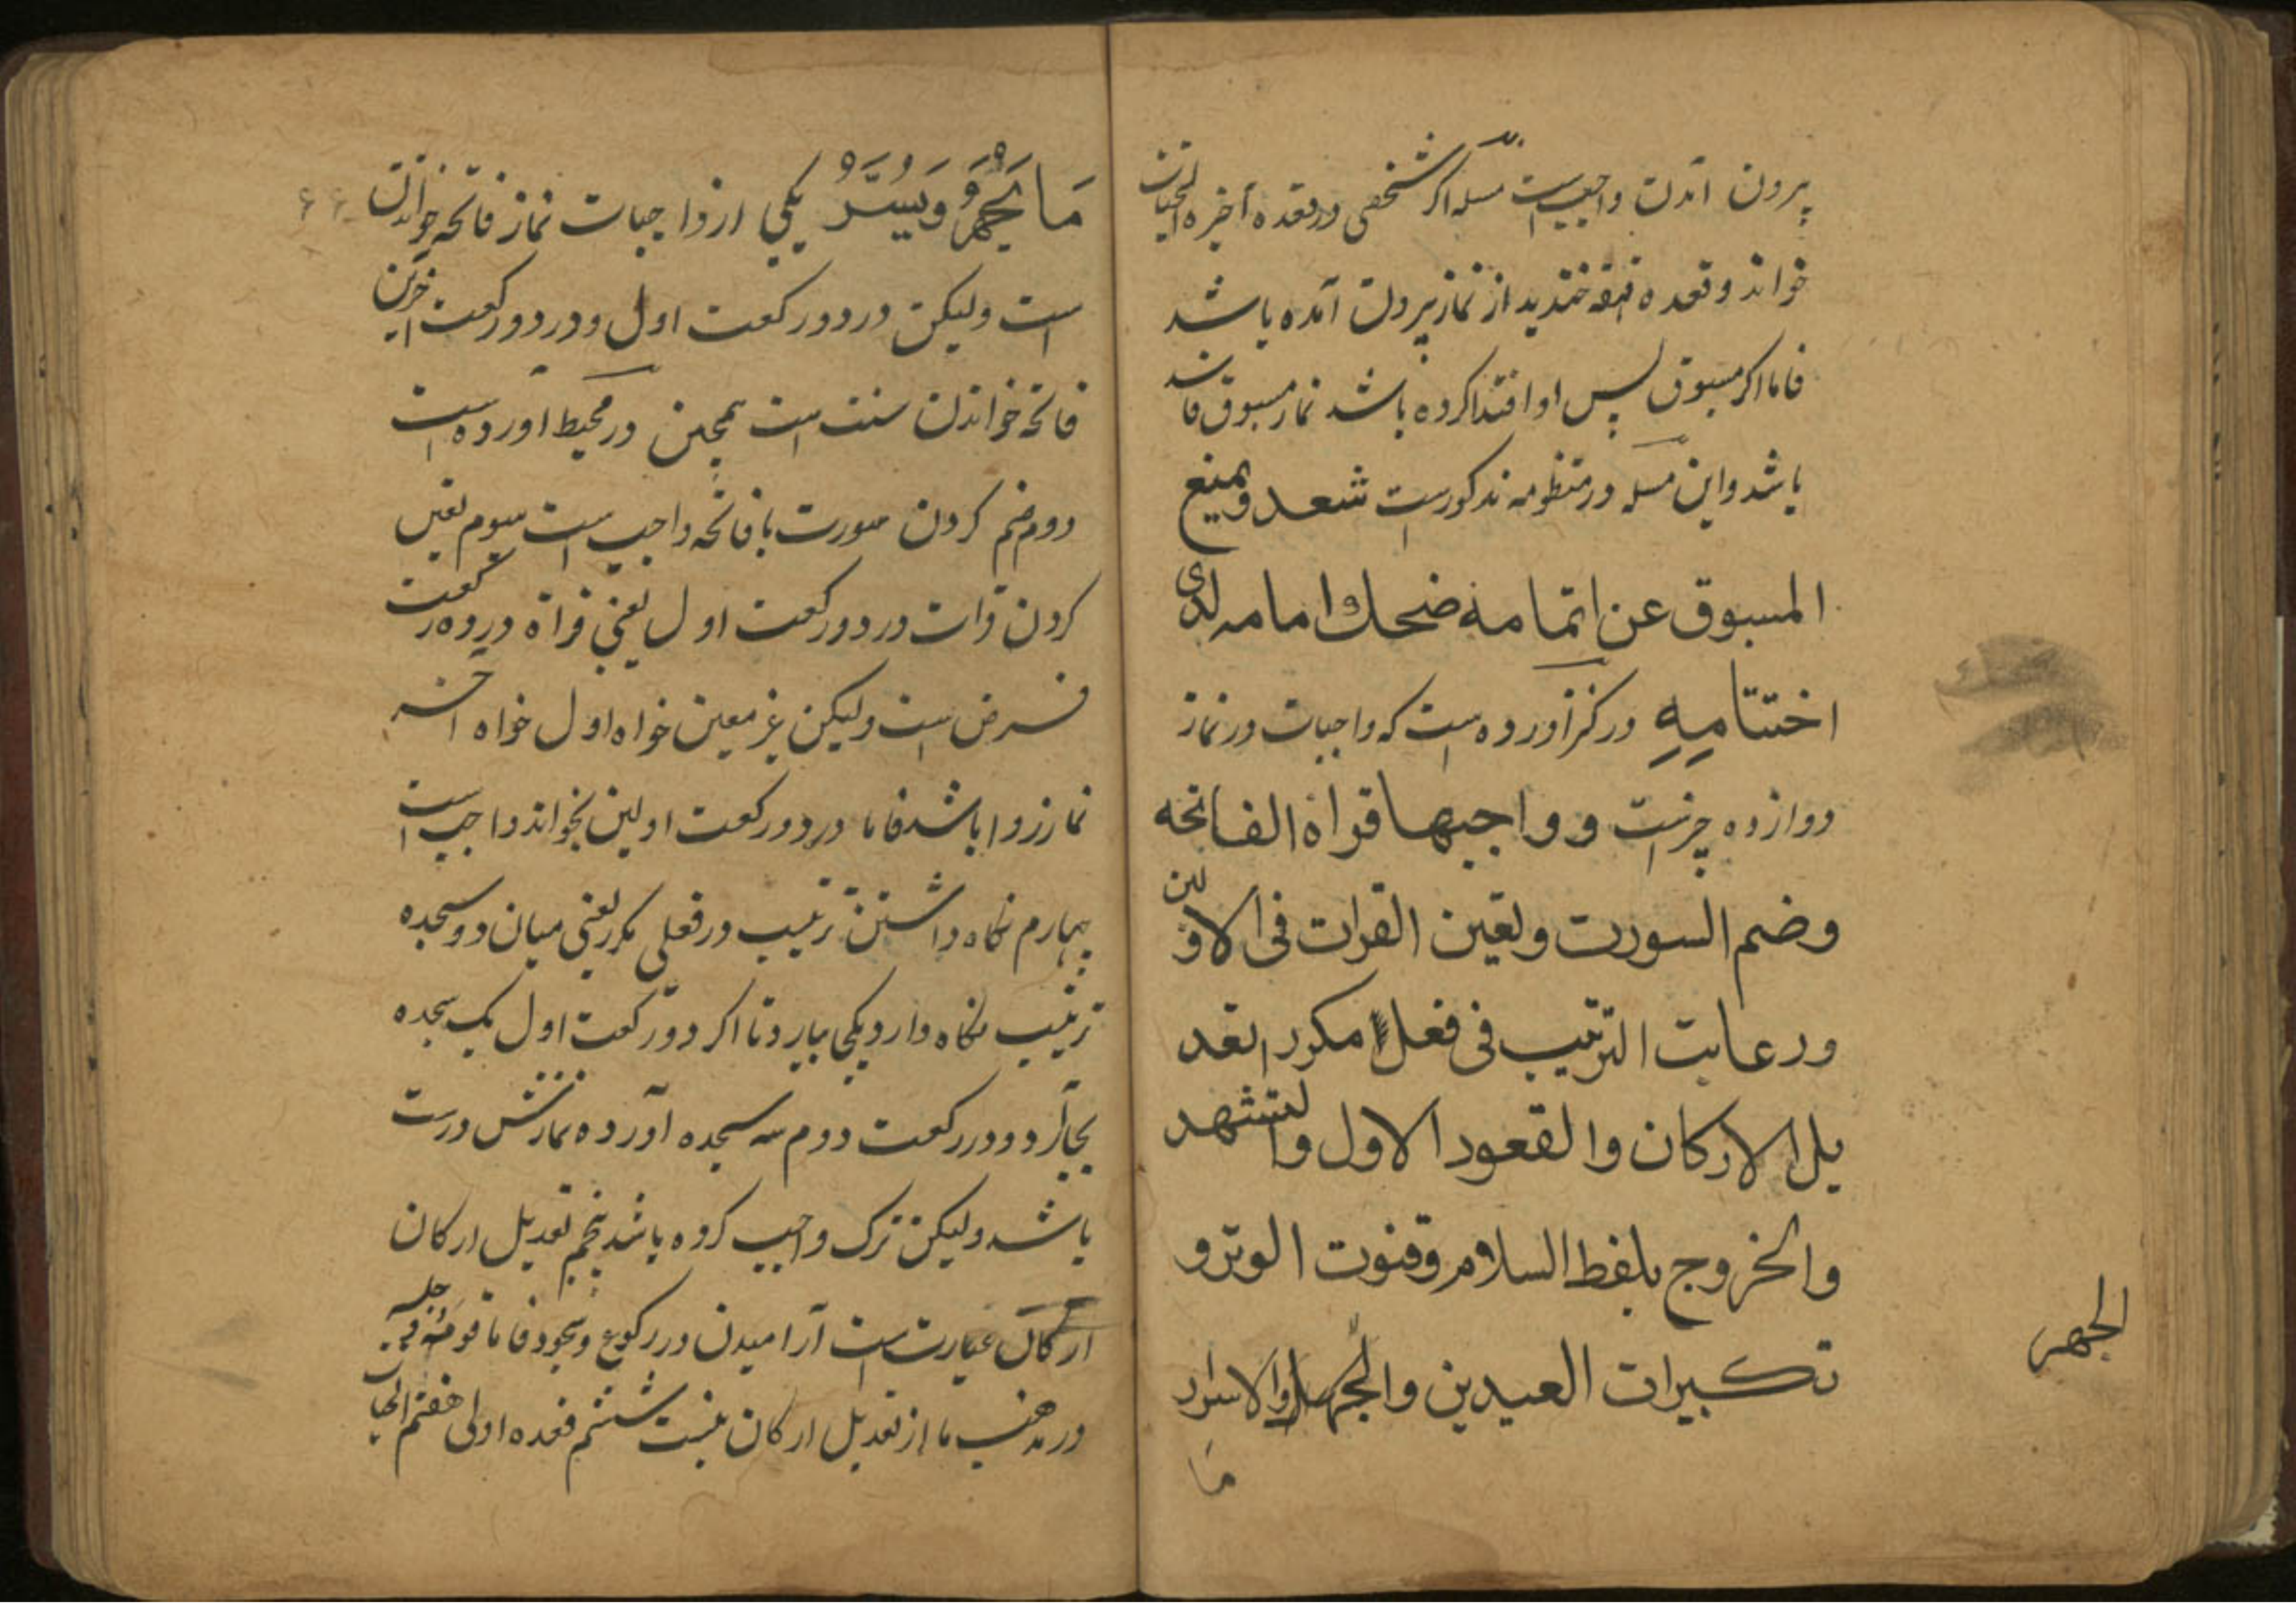 بیرون آمدن واجبست مسله اگر شخصی در قعده آخیره التحیات
خواند و قعده قهقه خندید از نماز بیرون آمده باشد
فاما اگر مسبوق پس او اقتدا کرده باشد نماز مسبوق فاسد
باشد و این مسله در منظومه مذکورست شعر ویمنع
المسبوق عن اتمامه ضحك امامه لدی
اختتامه در کنز آورده است که واجبات در نماز
دوازده چیزست و واجبها قراة الفاتحه
وضم السورت وتعین القرات فی الاولین
ورعایت الترتیب فی فعل مکرر تعد
یل الارکان والقعود الاول والتشهد
والخروج بلفظ السلام وقنوت الوتر و
تکبیرات العیدین والجهر والاسرار
الجهر
ما
مَا یَجْهَرُ وَیُسَرُّ یکی از واجبات نماز فاتحه خواندن
۶۶
است ولیکن در دو رکعت اول و در دو رکعت اخرین
فاتحه خواندن سنت است همچنین در محیط آورده است
دوم ضم کردن سورت با فاتحه واجب است سیوم تعین
کردن قرات در دو رکعت اول یعنی قراة در دو رکعت
فرض است ولیکن غیر معین خواه اول خواه آخر
نماز روا باشد فاما در دو رکعت اولین بخواند واجب است
چهارم نگاه داشتن ترتیب در فعلی مکرر یعنی میان دو سجده
ترتیب نگاه دارد و یکی بیارد تا اگر در رکعت اول یک سجده
بجا آرد و در رکعت دوم سه سجده آورده نمازش درست
باشد ولیکن ترک واجب کرده باشد پنجم تعدیل ارکان
ارکان عبارت است آرامیدن در رکوع و سجود فاما قومه و جلسه
در مذهب ما از تعدیل ارکان نیست ششم قعده اولی هفتم التحیات